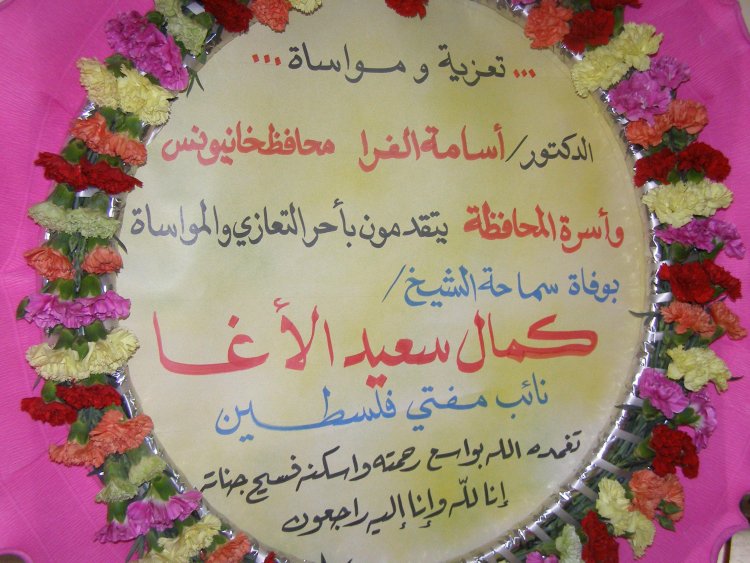 ... تعزية و مواساة ...
الدكتور/ أسامة الفرا محافظ خانيونس
وأسرة المحافظة يتقدمون بأحر التعازي والمواساة
بوفاة سماحة الشيخ/
كمال سعيد الأغا
نائب مفتي فلسطين
تغمده الله بواسع رحمته واسكنه فسيح جناته
إنا لله وإنا إليه راجعون